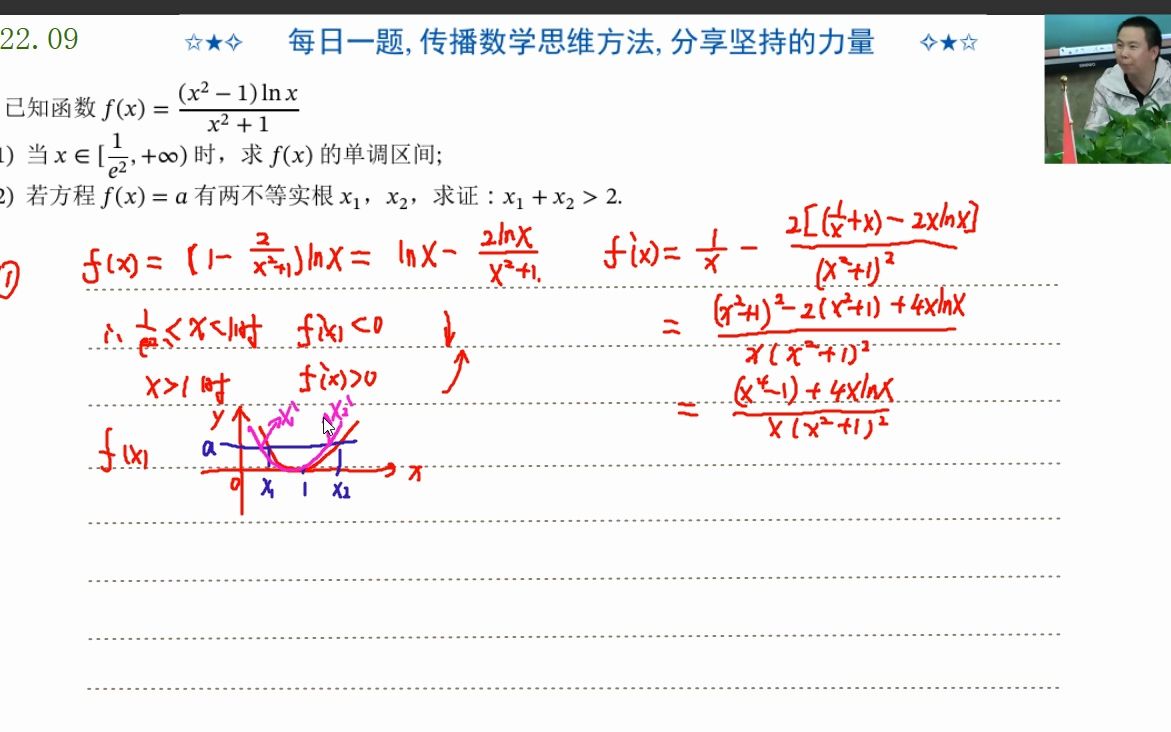 22.09
☆★✧ 每日一题, 传播数学思维方法, 分享坚持的力量 ✧★☆
已知函数 f(x) = (x² − 1) ln x / (x² + 1)
1) 当 x ∈ [1/e², +∞) 时，求 f(x) 的单调区间;
2) 若方程 f(x) = a 有两不等实根 x₁，x₂，求证：x₁ + x₂ > 2.
① f(x) = (1 − 2/(x²+1)) lnx = lnx − 2lnx/(x²+1).
f'(x) = 1/x − 2[(1/x + x) − 2xlnx] / (x²+1)²
= (x²+1)² − 2(x²+1) + 4xlnx / x(x²+1)²
= (x⁴−1) + 4xlnx / x(x²+1)²
∴ 1/e² < x < 1时 f'(x) < 0 ↓
x > 1时 f'(x) > 0 ↑
f(x)
y
x₁' x₂'
a
0 x₁ 1 x₂ x